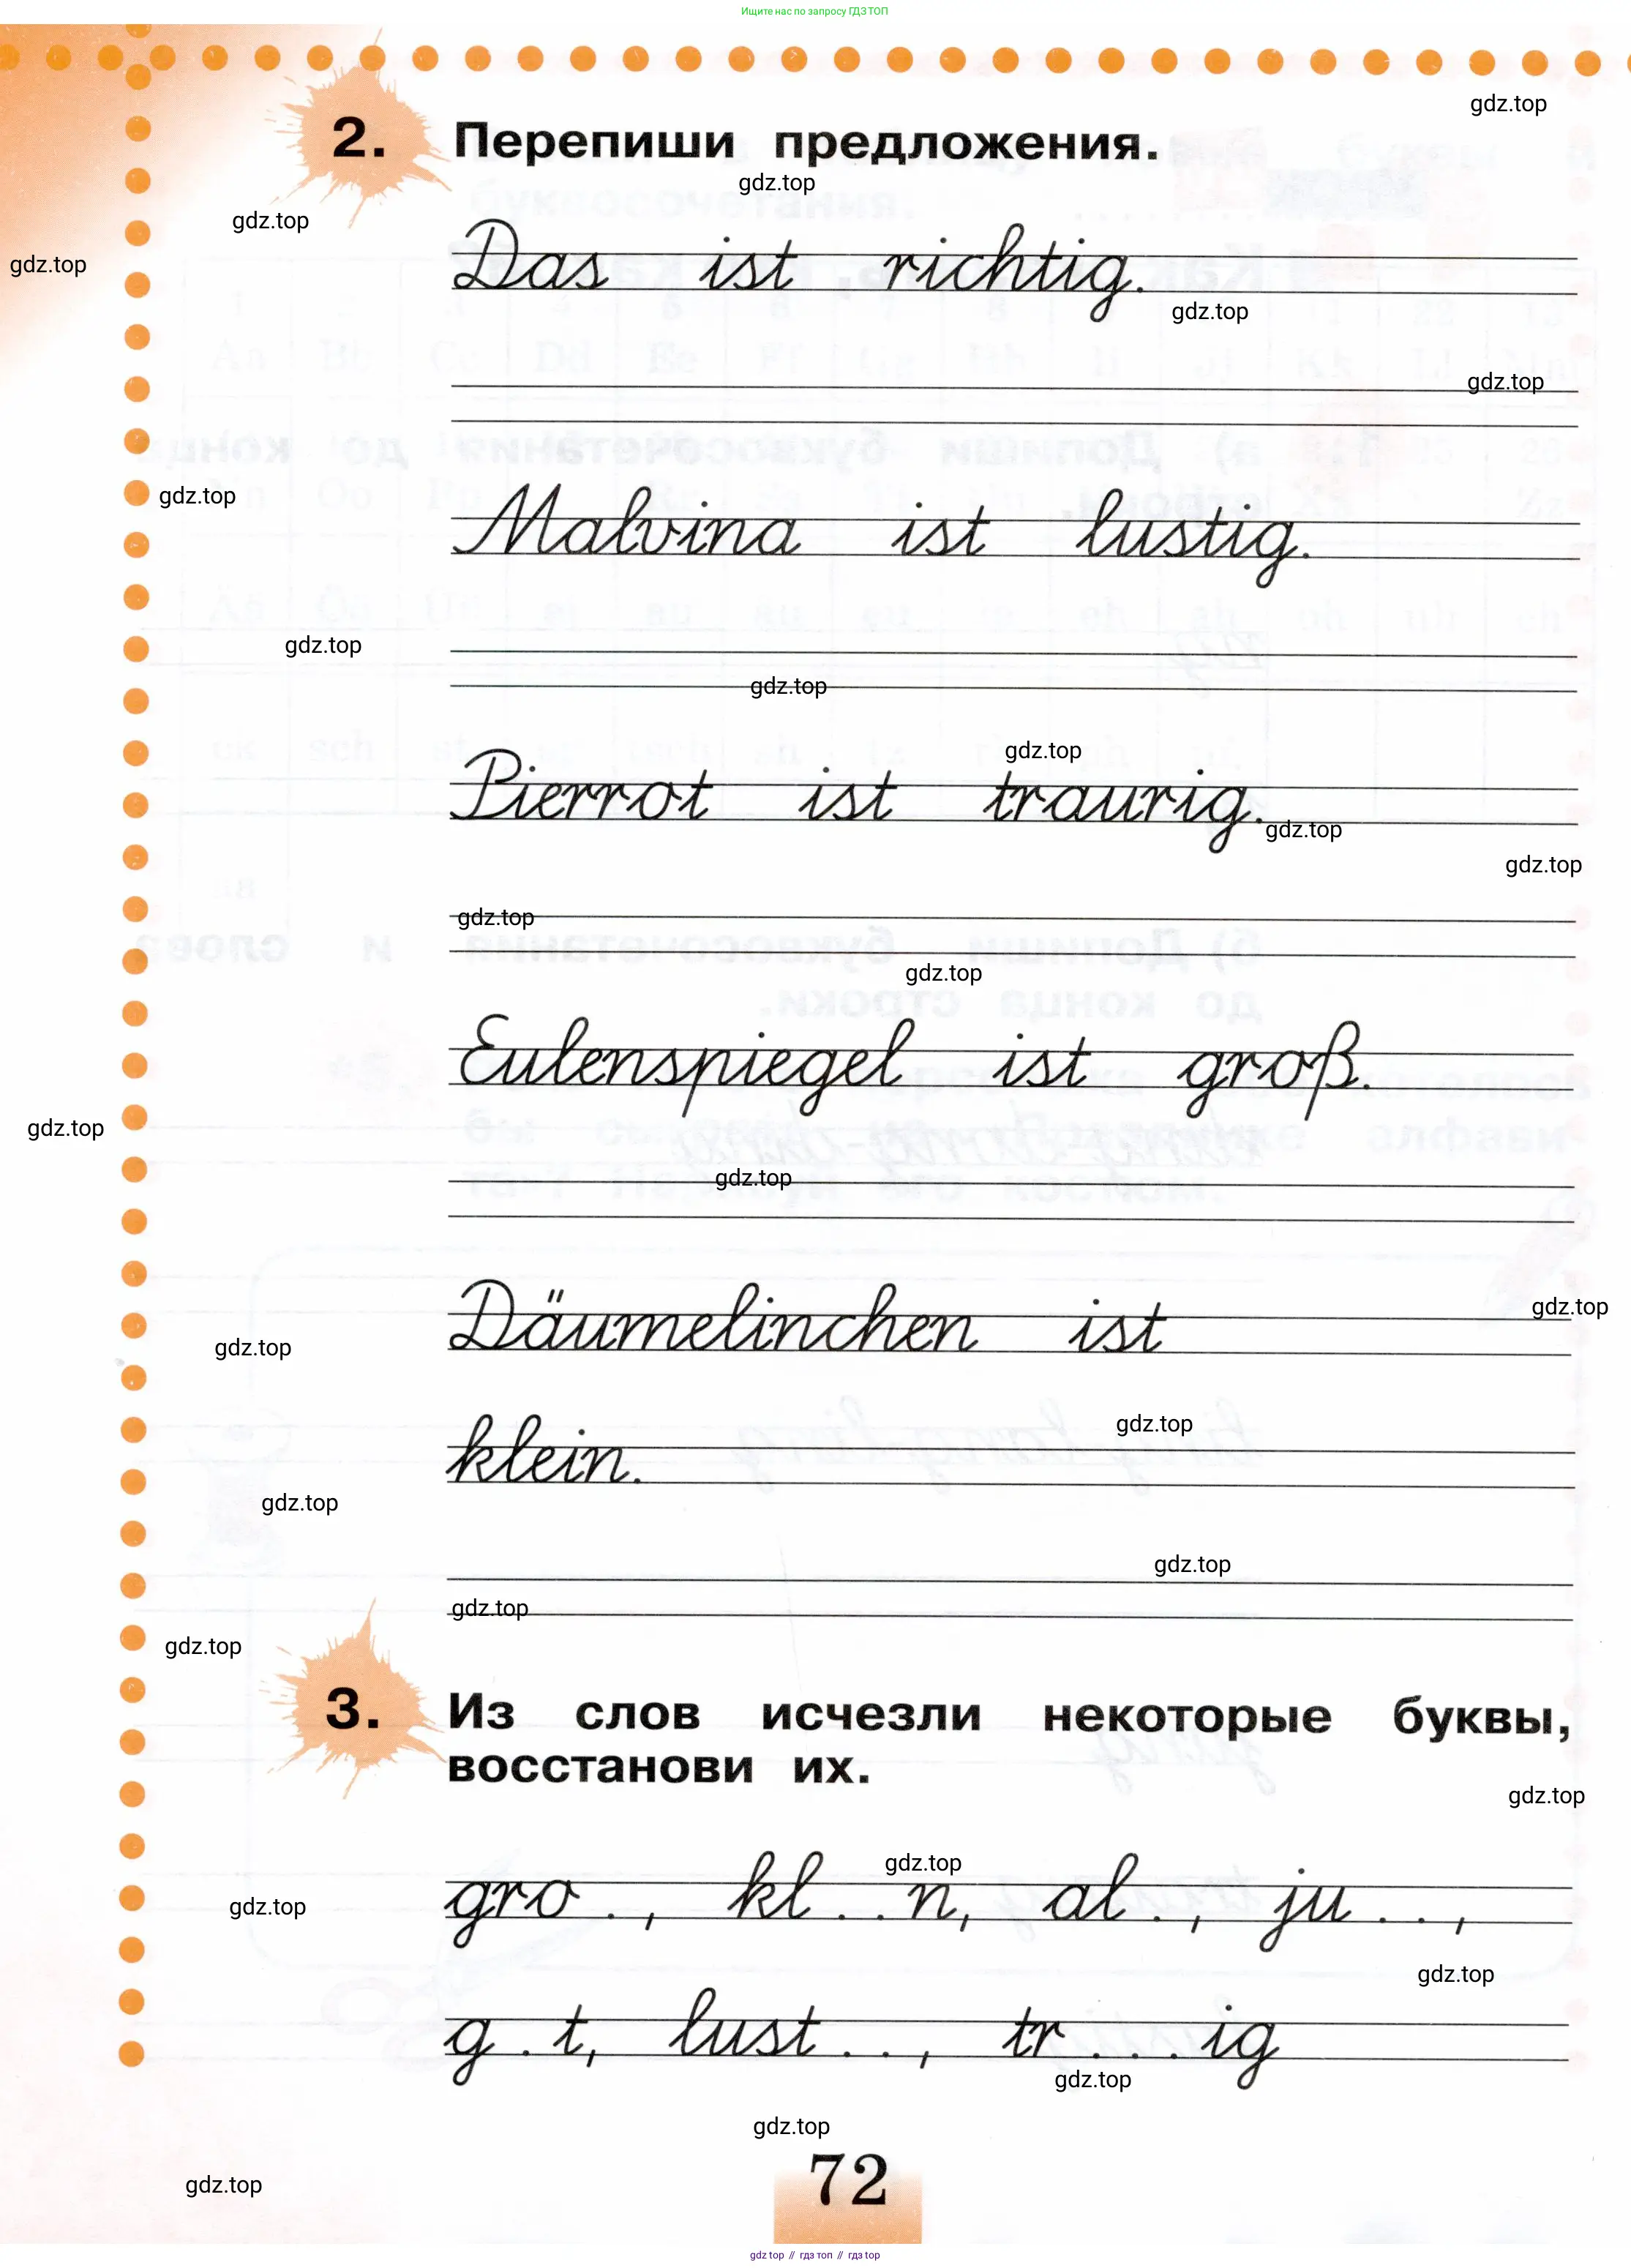 Ищите нас по запросу ГДЗ ТОП
gdz.top
2. Перепиши предложения.
gdz.top
gdz.top
gdz.top
Das ist richtig.
gdz.top
gdz.top
gdz.top
Malvina ist lustig.
gdz.top
gdz.top
gdz.top
Pierrot ist traurig.
gdz.top
gdz.top
gdz.top
gdz.top
Eulenspiegel ist groß.
gdz.top
gdz.top
gdz.top
Däumelinchen ist
gdz.top
gdz.top
klein.
gdz.top
gdz.top
gdz.top
gdz.top
3. Из слов исчезли некоторые буквы,
восстанови их.
gdz.top
gdz.top
gro . , kl . . n, al . , ju . . ,
gdz.top
gdz.top
g . t, lust . . , tr . . . ig
gdz.top
gdz.top
72
gdz.top
gdz top // гдз топ // гдз top